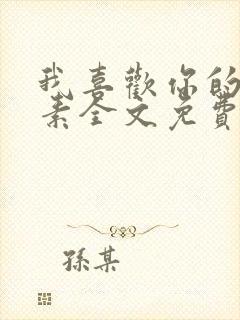 我喜歡你的
素全文免費
孫某